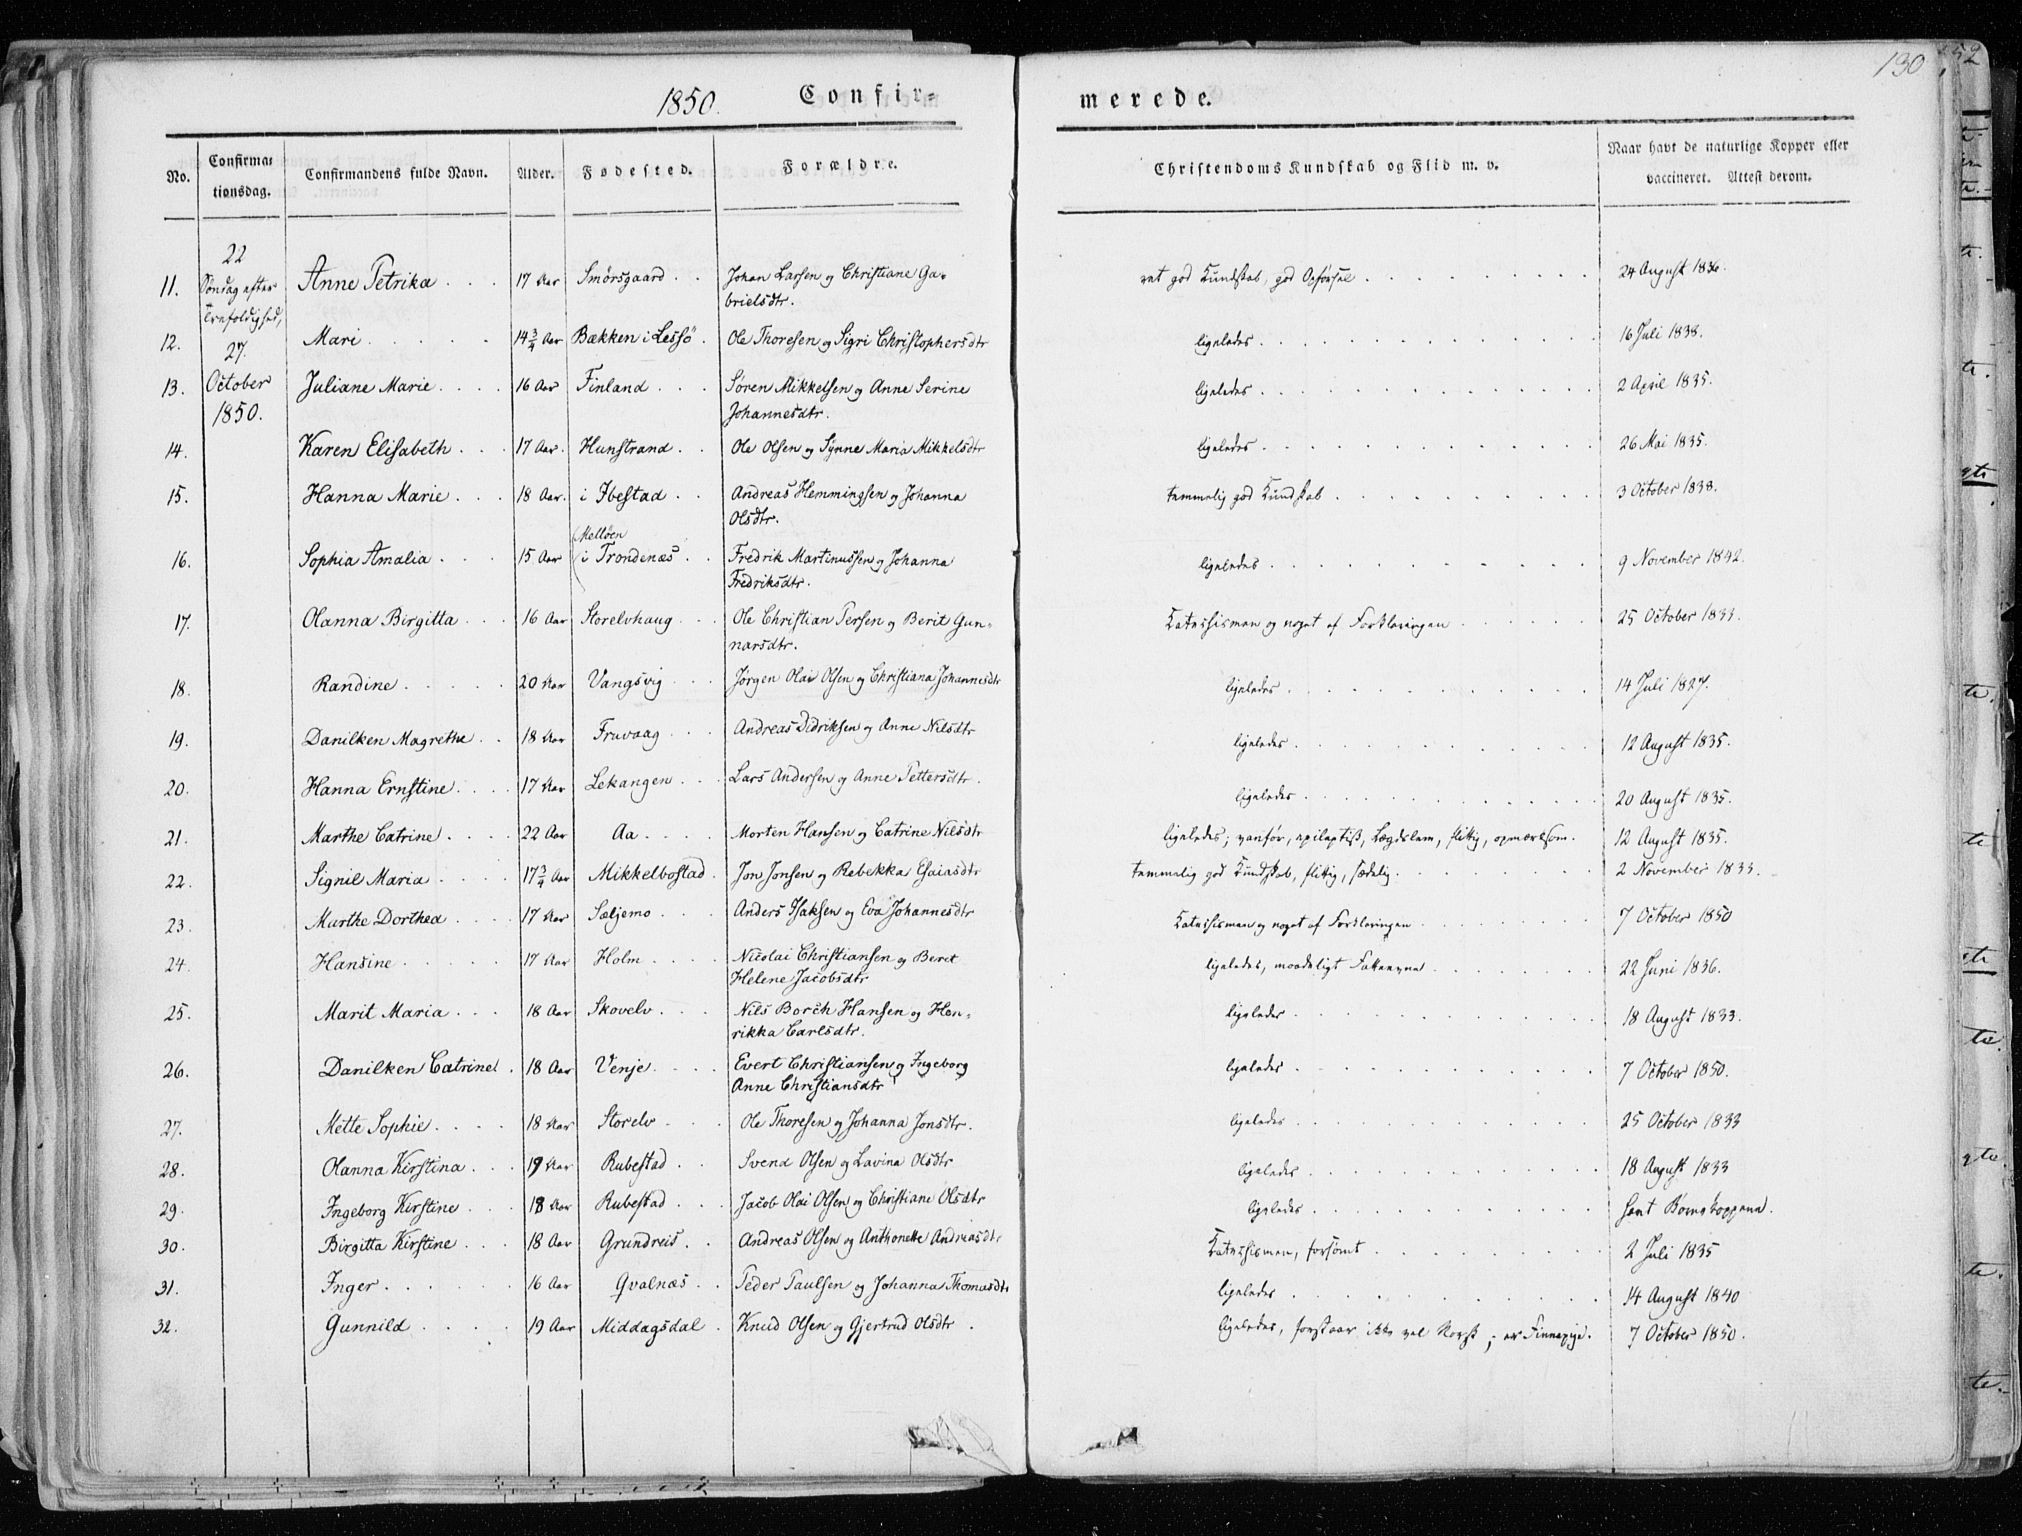 1850. Confir-
merede. 130
No.
Confirma-
tionsdag.
Confirmandens fulde Navn.
Alder.
Fødested.
Forældre.
Christendoms Kundskab og Flid m. v.
Naar havt de naturlige Kopper eller
vaccineret. Attest derom.
22
Søndag efter
Trefoldighed,
27.
October
1850.
11. Anne Petrika 17 Aar Smørsgaard Johan Larsen og Christiane Ga-
brielsdtr. ret god Kundskab, god Opførsel 24 August 1836.
12. Mari 14 3/4 Aar Bækken i Lessö Ole Thoresen og Sigri Christophersdtr ligeledes 16 Juli 1838.
13. Juliane Marie 16 Aar Finland Søren Mikkelsen og Anne Serine
Johannesdtr. ligeledes 2 April 1835.
14. Karen Elisabeth 17 Aar Hunstrand Ole Olsen og Synne Maria Mikkelsdtr ligeledes 26 Mai 1835.
15. Hanna Marie 18 Aar. i Ibestad Andreas Hemmingsen og Johanna
Olsdtr. temmelig god Kundskab 3 October 1838.
Melløen
16. Sophia Amalia 15 Aar i Trondenæs Fredrik Martinussen og Johanna
Fredriksdtr. ligeledes 9 November 1842.
17. Olanna Birgitta 16 Aar Storelvhaug Ole Christian Persen og Berit Gun-
narsdtr. Katechismen og noget af Forklaringen 25 October 1833.
18. Randine 20 Aar Vangsvig Jørgen Olai Olsen og Christiana Johannesdtr ligeledes 14 Juli 1827.
19. Danilken Magrethe 18 Aar Fruvaag Andreas Didriksen og Anne Nilsdtr ligeledes 12 August 1835.
20. Hanna Ernstine 17 Aar Lekangen Lars Andersen og Anne Pettersdtr. ligeledes 20 August 1835.
21. Marthe Catrine 22 Aar Aa Morten Hansen og Catrine Nilsdtr ligeledes; vanfør, epileptisk, Lægdslem, flittig, opmærksom. 12 August 1835.
22. Signil Maria 17 3/4 Aar Mikkelbostad Jon Jonsen og Rebekka Esaiasdtr temmelig god Kundskab, flittig, sædelig. 2 November 1833.
23. Marthe Dorthea 17 Aar Sæljemo Anders Isaksen og Eva Johannesdtr Katechismen og noget af Forklaringen 7 October 1850
24. Hansine 17 Aar Holm Nicolai Christiansen og Beret
Helene Jacobsdtr ligeledes, maadeligt Fatteevne 22 Juni 1836.
25. Marit Maria 18 Aar Skovelv Nils Borch Hansen og Hen-
rikka Carlsdtr. ligeledes 18 August 1833.
26. Danilken Catrine 18 Aar Venje Evert Christiansen og Ingeborg
Anne Christiansdtr ligeledes 7 October 1850.
27. Mette Sophie 18 Aar Storelv Ole Thoresen og Johanna Jonsdtr. ligeledes 25 October 1833
28. Olanna Kirstina 19 Aar Rubestad Svend Olsen og Lavina Olsdtr ligeledes 18 August 1833
29. Ingeborg Kirstine 18 Aar Rubestad Jacob Olai Olsen og Christiane Olsdtr ligeledes havt Børnekopperne.
30. Birgitta Kirstine 18 Aar Grundreis Andreas Olsen og Anthonette Andreasdtr Katechismen, forsømt 2 Juli 1835
31. Inger 16 Aar Qvalnæs Peder Paulsen og Johanna Thomasdtr ligeledes 14 August 1840
32. Gunnild 19 Aar Middagsdal Knud Olsen og Gjertrud Olsdtr ligeledes, forstaar ikke vel Norsk; er Finnepige. 7 October 1850.